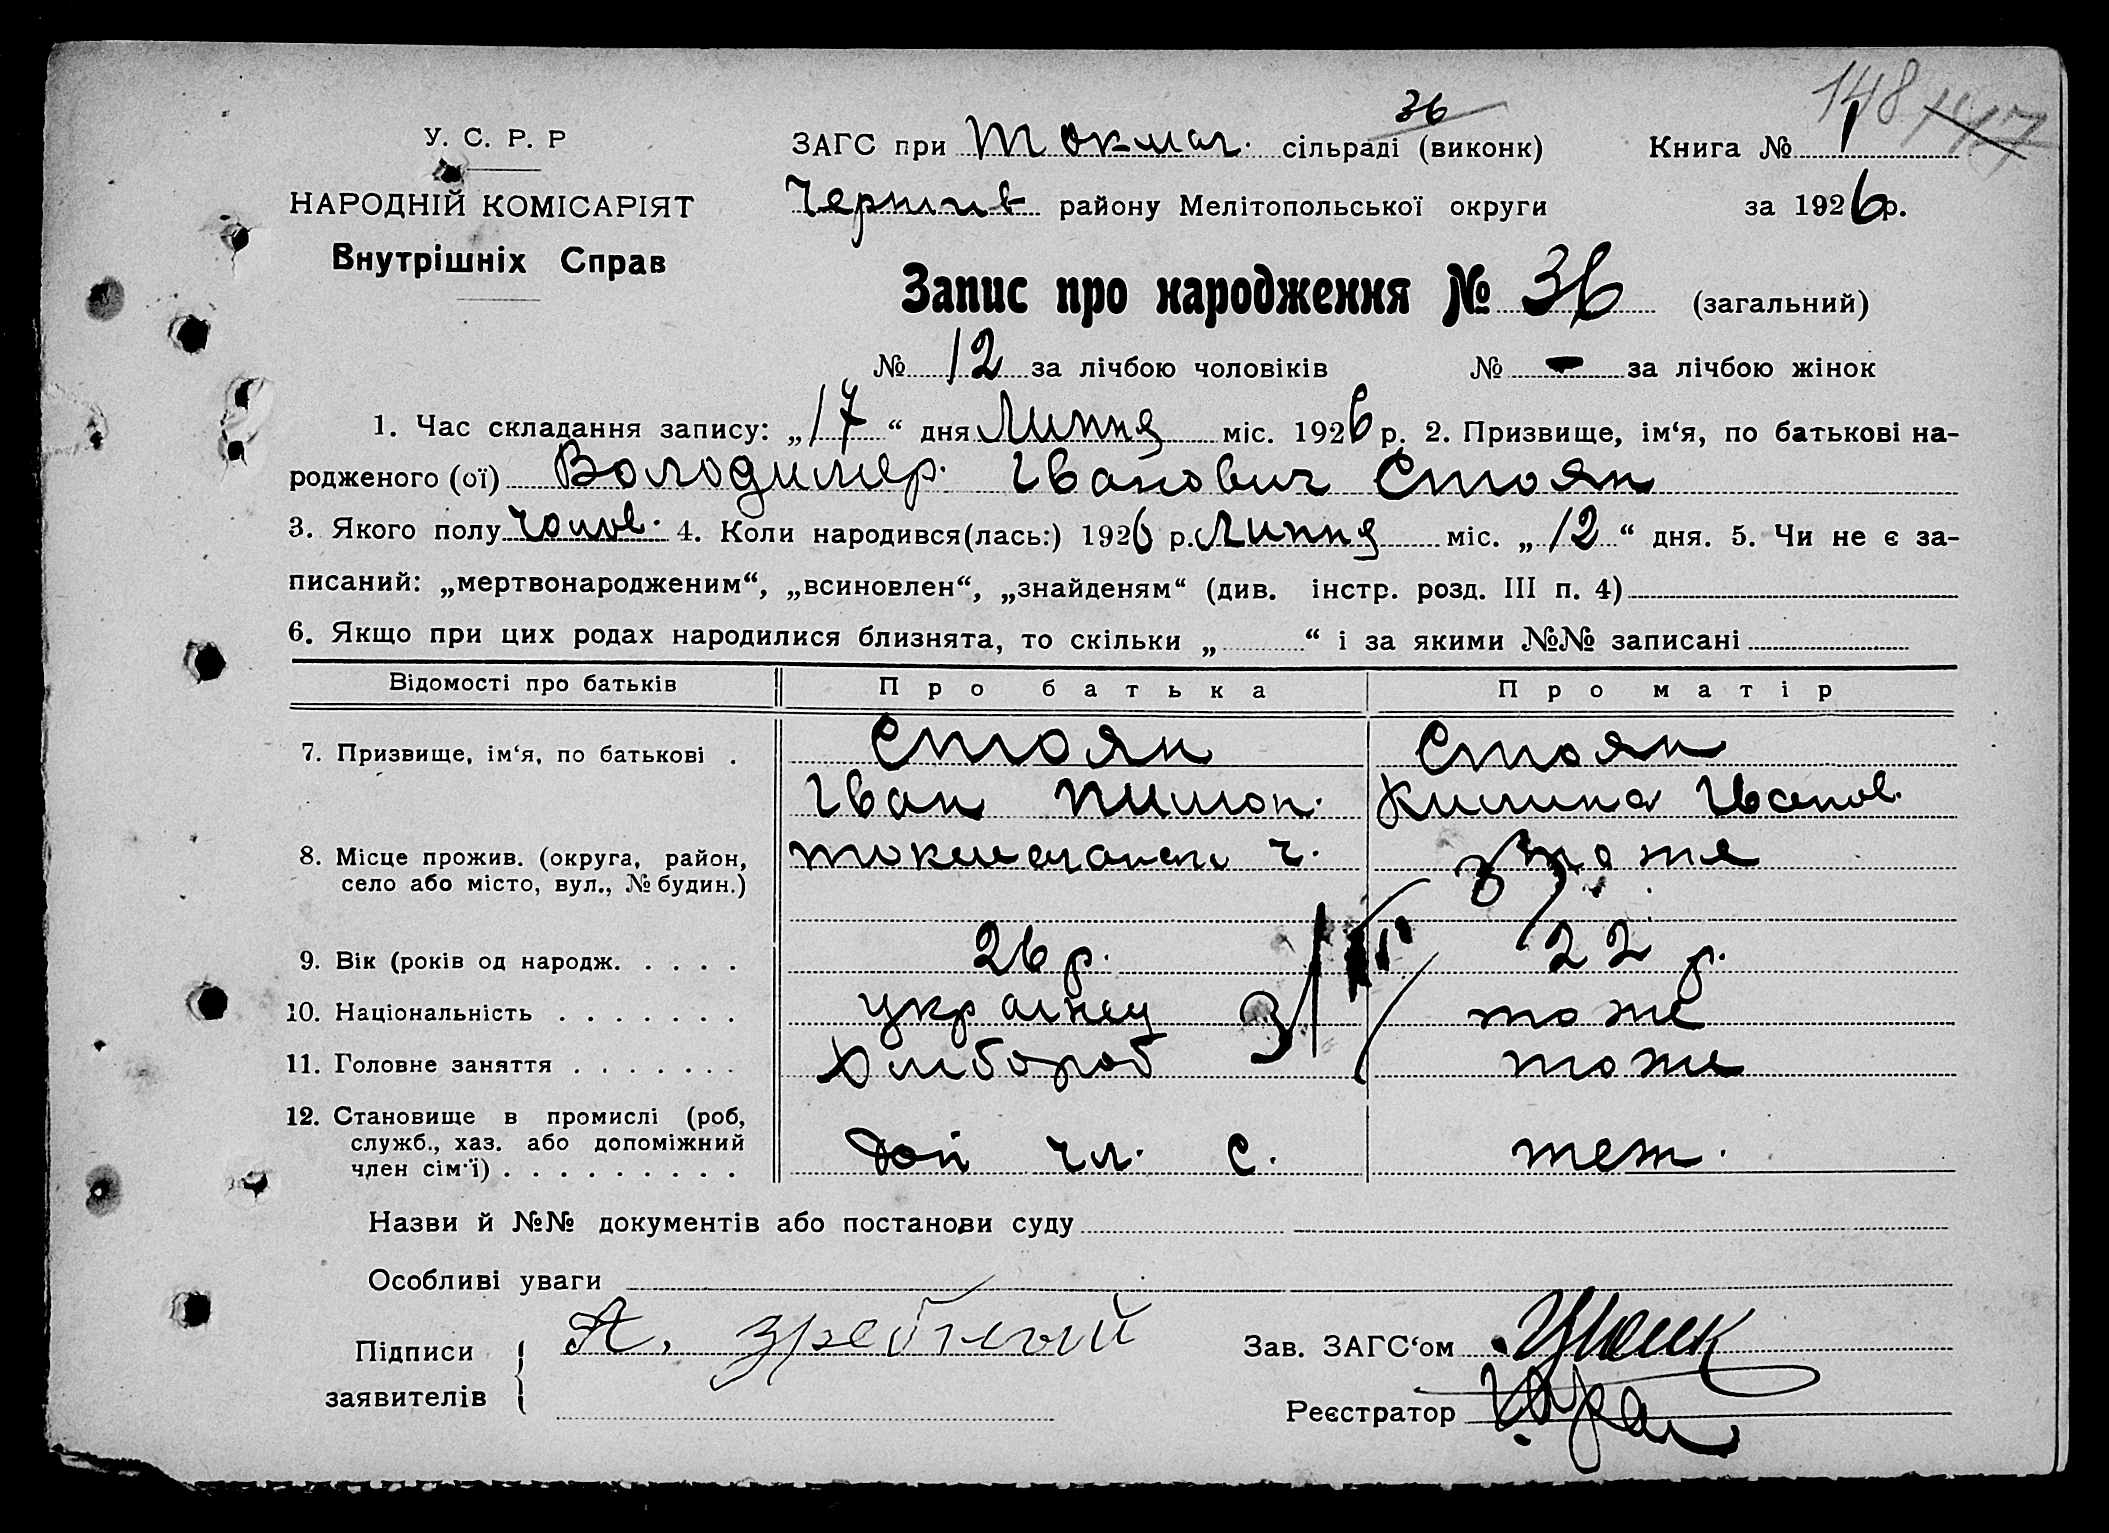 148 147
36
У. С. Р. Р
НАРОДНІЙ КОМІСАРІЯТ
Внутрішніх Справ
ЗАГС при Токмач. сільраді (виконк) Книга № 1
Черниг району Мелітопольської округи за 1926 р.
Запис про народження № 36 (загальний)
№ 12 за лічбою чоловіків № - за лічбою жінок
1. Час складання запису: „17“ дня Липня міс. 1926 р. 2. Призвище, ім‘я, по батькові на-
родженого (ої) Володимер. Іванович Стоян
3. Якого полу чолов. 4. Коли народився(лась:) 1926 р. Липня міс. „12“ дня. 5. Чи не є за-
писаний: „мертвонародженим“, „всиновлен“, „знайденям“ (див. інстр. розд. III п. 4)
6. Якщо при цих родах народилися близнята, то скільки „ “ і за якими №№ записані
Відомості про батьків Про батька Про матір
7. Призвище, ім‘я, по батькові . Стоян Стоян
Іван Пимон. Килина Иванов.
8. Місце прожив. (округа, район,
село або місто, вул., № будин.) тоже
9. Вік (років од народж. . . . . 26 р. 22 р.
10. Національність . . . . . . . українец тоже
11. Головне заняття . . . . . . . Хлибороб тоже
12. Становище в промислі (роб,
служб., хаз. або допоміжний
член сім‘ї) . . . . . . . . . доп чл. с. теж.
Назви й №№ документів або постанови суду
Особливі уваги
Підписи
заявителів
А.
Зав. ЗАГС‘ом
Реєстратор